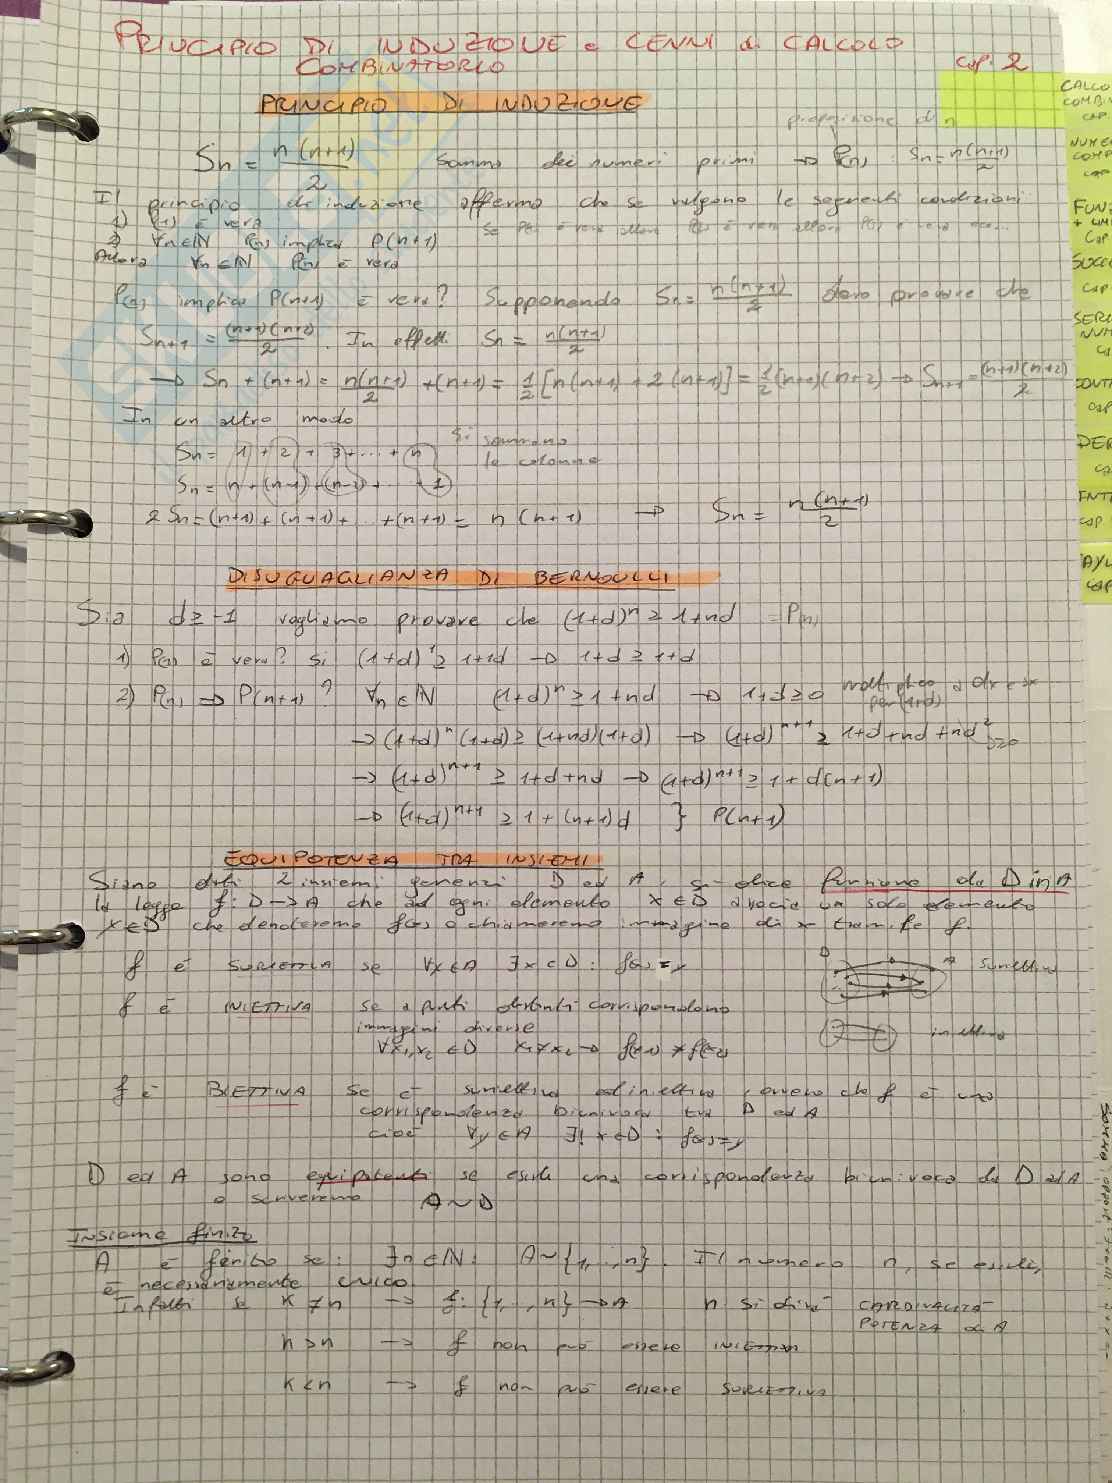 PRINCIPIO DI INDUZIONE e CENNI di CALCOLO
COMBINATORIO
cap. 2
PRINCIPIO DI INDUZIONE
proposizione di n
Sn = n(n+1)/2 somma dei numeri primi → P(n) : Sn = n(n+1)/2
Il principio di induzione afferma che se valgono le seguenti condizioni
1) P(1) è vera
2) ∀n∈ℕ P(n) implica P(n+1)
Allora ∀n∈ℕ P(n) è vera
P(n) implica P(n+1) è vera? Supponendo Sn = n(n+1)/2 devo provare che
Sn+1 = (n+1)(n+2)/2 . In effetti Sn = n(n+1)/2
→ Sn + (n+1) = n(n+1)/2 + (n+1) = 1/2 [n(n+1) + 2(n+1)] = 1/2 (n+1)(n+2) → Sn+1 = (n+1)(n+2)/2
In un altro modo
Sn = 1 + 2 + 3 + ... + n
Si sommano
le colonne
Sn = n + (n-1) + (n-2) + ... 1
2Sn = (n+1) + (n+1) + ... + (n+1) = n(n+1) → Sn = n(n+1)/2
DISUGUAGLIANZA DI BERNOULLI
Sia d ≥ -1 vogliamo provare che (1+d)^n ≥ 1+nd = P(n)
1) P(1) è vera? Si (1+d)^1 ≥ 1+1d → 1+d ≥ 1+d
2) P(n) ⇒ P(n+1) ? ∀n∈ℕ (1+d)^n ≥ 1+nd → 1+d ≥ 0 moltiplico a dx e sx
per (1+d)
→ (1+d)^n (1+d) ≥ (1+nd)(1+d) → (1+d)^n+1 ≥ 1+d+nd+nd² ≥0
→ (1+d)^n+1 ≥ 1+d+nd → (1+d)^n+1 ≥ 1+d(n+1)
→ (1+d)^n+1 ≥ 1+(n+1)d } P(n+1)
EQUIPOTENZA TRA INSIEMI
Siano dati 2 insiemi generici D ed A, si dice funzione da D in A
la legge f: D→A che ad ogni elemento x∈D associa un solo elemento
x∈D che denoteremo f(x) o chiameremo immagine di x tramite f.
f è SURIETTIVA se ∀x∈A ∃x∈D : f(x)=y
D A suriettiva
f è INIETTIVA se a punti distinti corrispondono
immagini diverse
iniettiva
∀x1,x2 ∈D x1≠x2 → f(x1)≠f(x2)
f è BIETTIVA se è suriettiva ed iniettiva, ovvero che f è una
corrispondenza biunivoca tra D ed A
cioè ∀y∈A ∃! x∈D : f(x)=y
D ed A sono equipotenti se esiste una corrispondenza biunivoca da D ad A
e scriveremo A∼D
Insieme finito
A è finito se: ∃n∈ℕ: A∼{1,..,n}. Il numero n, se esiste,
è necessariamente unico.
Infatti se K≠n → f: {1,..,n}→A n si dirà CARDINALITÀ
POTENZA di A
n>n → f non può essere INIETTIVA
K<n → f non può essere SURIETTIVA
CALCO
COMBIN
CAP.
CAP
FUNZ
+ LIMI
CAP.
SUCCE
CAP
SERI
NUM
CONTI
CAP
DER
CAP